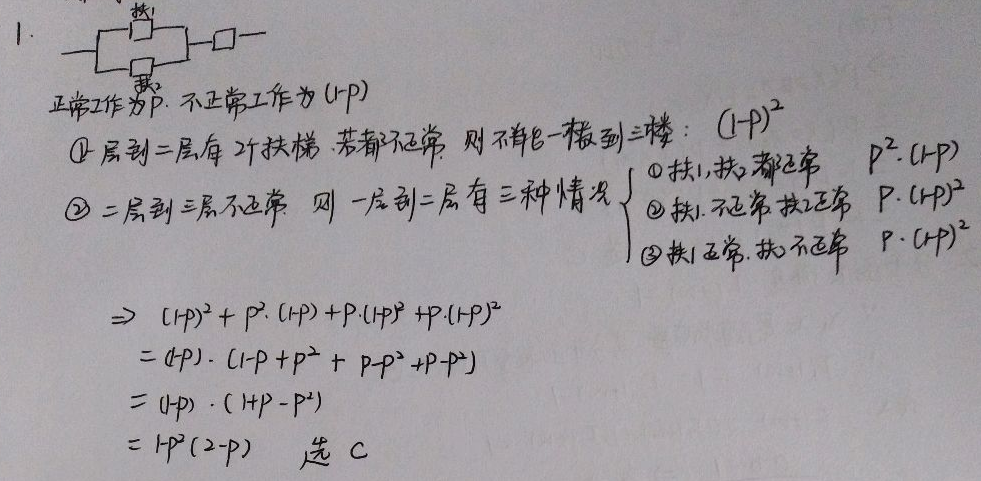 1.
扶1
扶2
正常工作为P. 不正常工作为(1-P)
① 一层到二层有2个扶梯.若都不正常.则不能一楼到三楼: (1-P)²
② 二层到三层不正常 则一层到二层有三种情况
①扶1,扶2都正常 P²·(1-P)
②扶1.不正常.扶2正常 P·(1-P)²
③扶1正常.扶2不正常 P·(1-P)²
⇒ (1-P)²+P²·(1-P)+P·(1-P)²+P·(1-P)²
=(1-P)·(1-P+P²+P-P²+P-P²)
=(1-P)·(1+P-P²)
=1-P²(2-P) 选 C